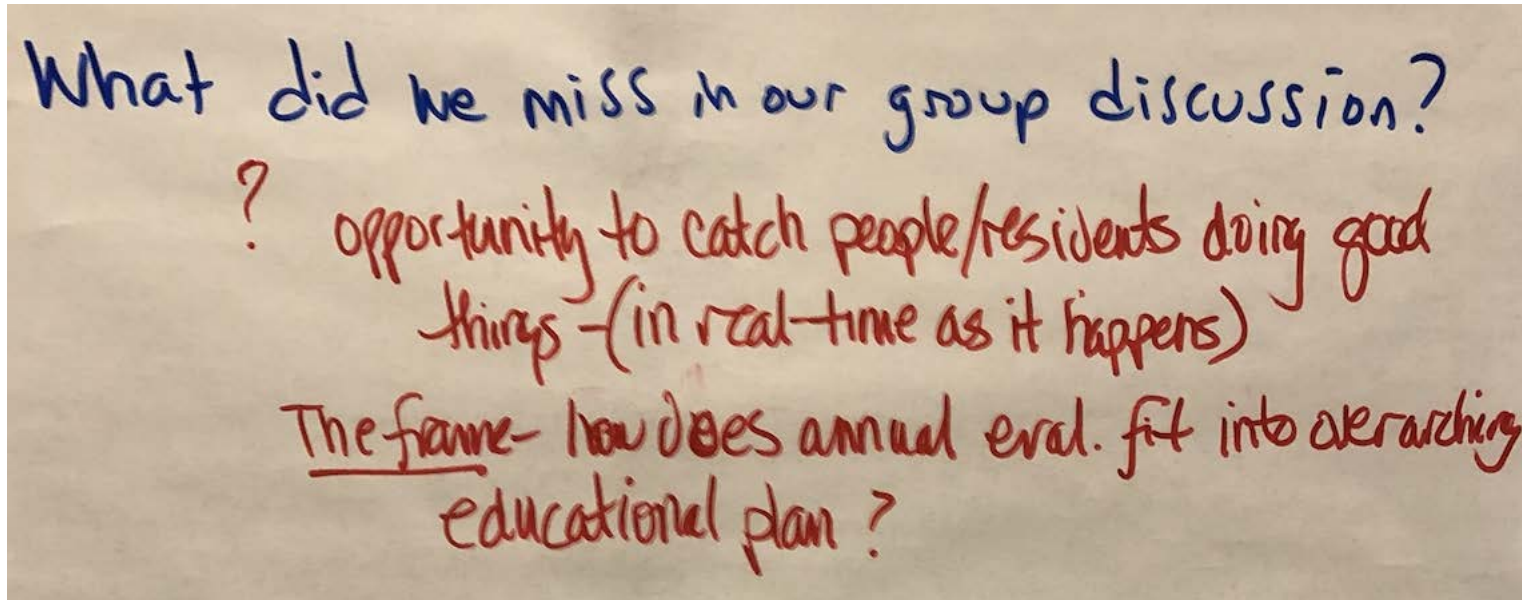 What did we miss in our group discussion?
? opportunity to catch people/residents doing good
things - (in real-time as it happens)
The frame - how does annual eval. fit into overarching
educational plan?